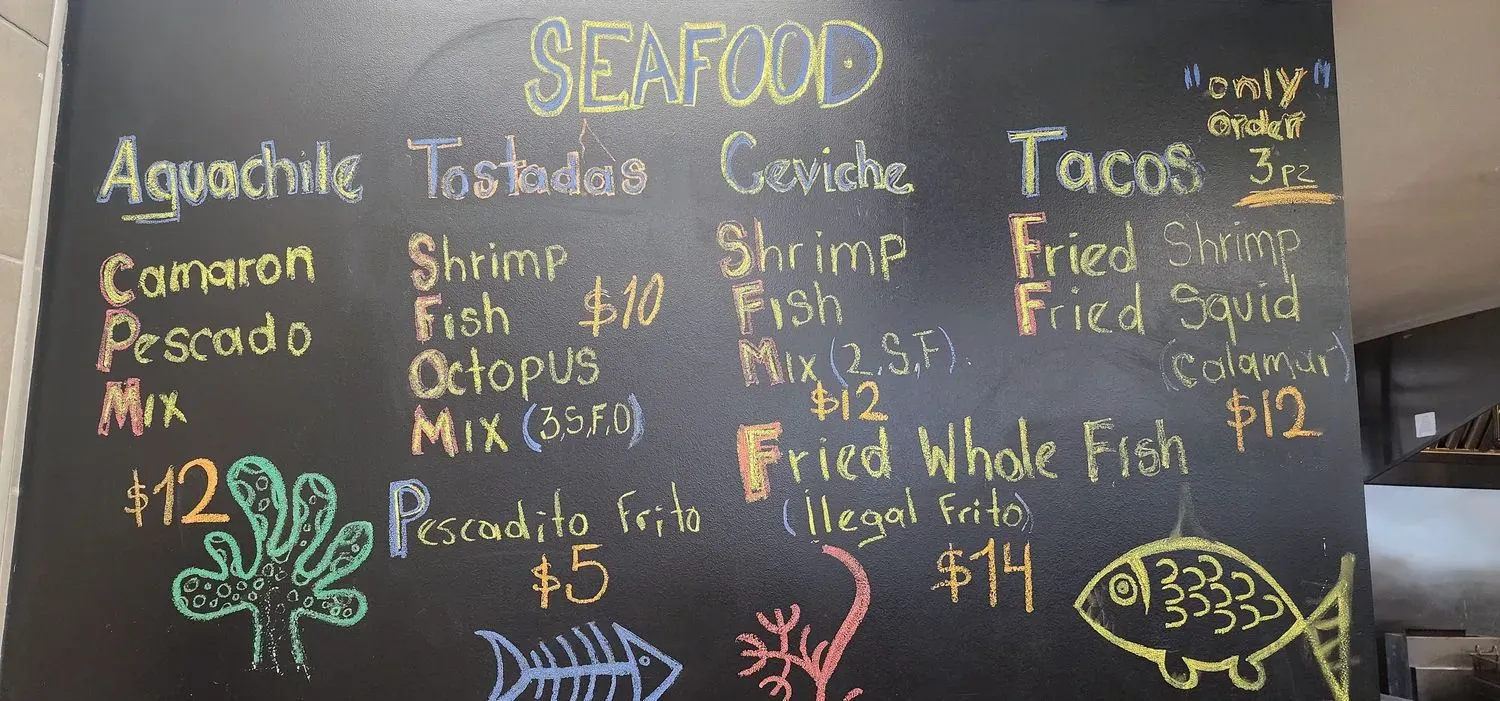 SEAFOOD
"only"
Order
3 pz
Aguachile
Camaron
Pescado
Mix
$12
Tostadas
Shrimp
Fish
$10
Octopus
Mix (3,S,F,O)
Pescadito Frito
$5
Ceviche
Shrimp
Fish
Mix (2,S,F).
$12
Tacos
Fried Shrimp
Fried Squid
(calamar)
$12
Fried Whole Fish
(Ilegal Frito)
$14